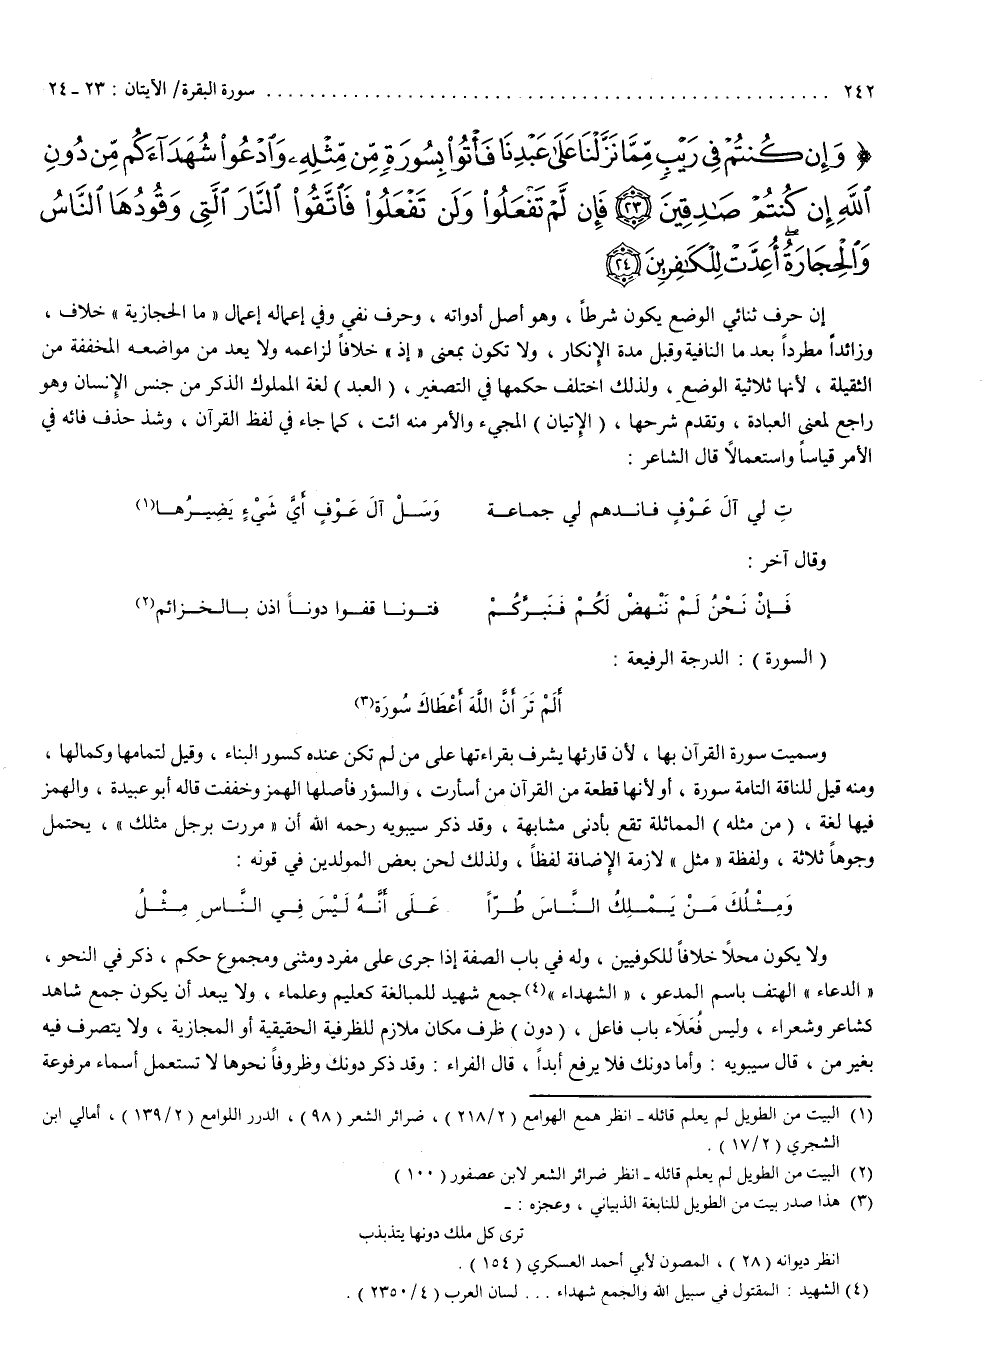 ٢٤٢ ............................................... سورة البقرة/ الآيتان : ٢٣ - ٢٤
﴿ وَإِن كُنتُمْ فِي رَيْبٍ مِّمَّا نَزَّلْنَا عَلَىٰ عَبْدِنَا فَأْتُوا۟ بِسُورَةٍ مِّن مِّثْلِهِۦ وَٱدْعُوا۟ شُهَدَآءَكُم مِّن دُونِ
ٱللَّهِ إِن كُنتُمْ صَٰدِقِينَ ٢٣ فَإِن لَّمْ تَفْعَلُوا۟ وَلَن تَفْعَلُوا۟ فَٱتَّقُوا۟ ٱلنَّارَ ٱلَّتِى وَقُودُهَا ٱلنَّاسُ
وَٱلْحِجَارَةُ ۖ أُعِدَّتْ لِلْكَٰفِرِينَ ٢٤
إن حرف ثنائي الوضع يكون شرطاً ، وهو أصل أدواته ، وحرف نفي وفي إعماله إعمال « ما الحجازية » خلاف ،
وزائداً مطرداً بعد ما النافية وقبل مدة الإنكار ، ولا تكون بمعنى « إذ » خلافاً لزاعمه ولا يعد من مواضعه المخففة من
الثقيلة ، لأنها ثلاثية الوضع ، ولذلك اختلف حكمها في التصغير ، ( العبد ) لغة المملوك الذكر من جنس الإنسان وهو
راجع لمعنى العبادة ، وتقدم شرحها ، ( الإتيان ) المجيء والأمر منه ائت ، كما جاء في لفظ القرآن ، وشذ حذف فائه في
الأمر قياساً واستعمالاً قال الشاعر :
تِ لي آلَ عَوْفٍ فاندهم لي جماعة وَسَلْ آلَ عَوْفٍ أَيَّ شَيْءٍ يَضِيرُها(١)
وقال آخر :
فَإِنْ نَحْنُ لَمْ نَنْهِضْ لَكُمْ فَنَبِرَّكُمْ فتونا قفوا دوناً اذن بالخزائم(٢)
( السورة ) : الدرجة الرفيعة :
أَلَمْ تَرَ أَنَّ اللَّهَ أَعْطَاكَ سُورَة(٣)
وسميت سورة القرآن بها ، لأن قارئها يشرف بقراءتها على من لم تكن عنده كسور البناء ، وقيل لتمامها وكمالها ،
ومنه قيل للناقة التامة سورة ، أو لأنها قطعة من القرآن من أسأرت ، والسؤر فأصلها الهمز وخففت قاله أبو عبيدة ، والهمز
فيها لغة ، ( من مثله ) المماثلة تقع بأدنى مشابهة ، وقد ذكر سيبويه رحمه الله أن « مررت برجل مثلك » ، يحتمل
وجوهاً ثلاثة ، ولفظة « مثل » لازمة الإضافة لفظاً ، ولذلك لحن بعض المولدين في قوله :
وَمِثْلُكَ مَنْ يَمْلِكُ النَّاسَ طُرّاً عَلَى أَنَّهُ لَيْسَ فِي النَّاسِ مِثْلُ
ولا يكون محلاً خلافاً للكوفيين ، وله في باب الصفة إذا جرى على مفرد ومثنى ومجموع حكم ، ذكر في النحو ،
« الدعاء » الهتف باسم المدعو ، « الشهداء »(٤) جمع شهيد للمبالغة كعليم وعلماء ، ولا يبعد أن يكون جمع شاهد
كشاعر وشعراء ، وليس فُعَلَاء باب فاعل ، ( دون ) ظرف مكان ملازم للظرفية الحقيقية أو المجازية ، ولا يتصرف فيه
بغير من ، قال سيبويه : وأما دونك فلا يرفع أبداً ، قال الفراء : وقد ذكر دونك وظروفاً نحوها لا تستعمل أسماء مرفوعة
(١) البيت من الطويل لم يعلم قائله - انظر همع الهوامع ( ٢١٨/٢ ) ، ضرائر الشعر ( ٩٨ ) ، الدرر اللوامع ( ١٣٩/٢ ) ، أمالي ابن
الشجري ( ١٧/٢ ) .
(٢) البيت من الطويل لم يعلم قائله - انظر ضرائر الشعر لابن عصفور ( ١٠٠ )
(٣) هذا صدر بيت من الطويل للنابغة الذبياني ، وعجزه : -
ترى كل ملك دونها يتذبذب
انظر ديوانه ( ٢٨ ) ، المصون لأبي أحمد العسكري ( ١٥٤ ) .
(٤) الشهيد : المقتول في سبيل الله والجمع شهداء ... لسان العرب ( ٢٣٥٠/٤ ) .